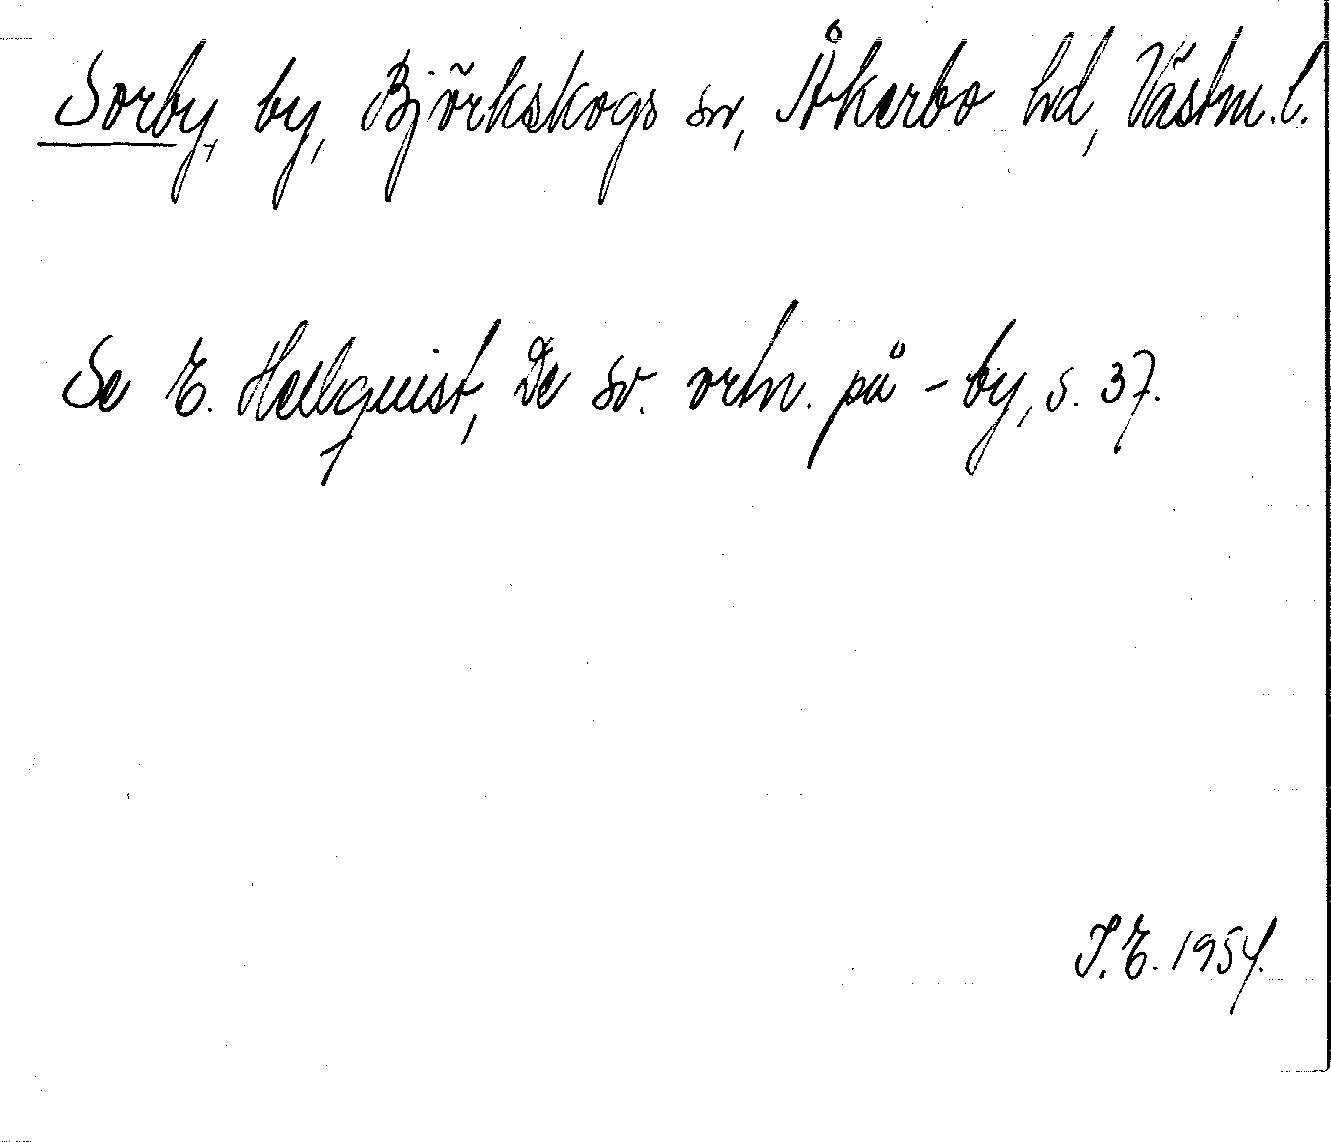 Sorby, by, Björkskogs sn, Åkerbo hd, Västm. l.
Se E. Hellquist, De sv. ortn. på -by, s. 37.
I. E. 1954.